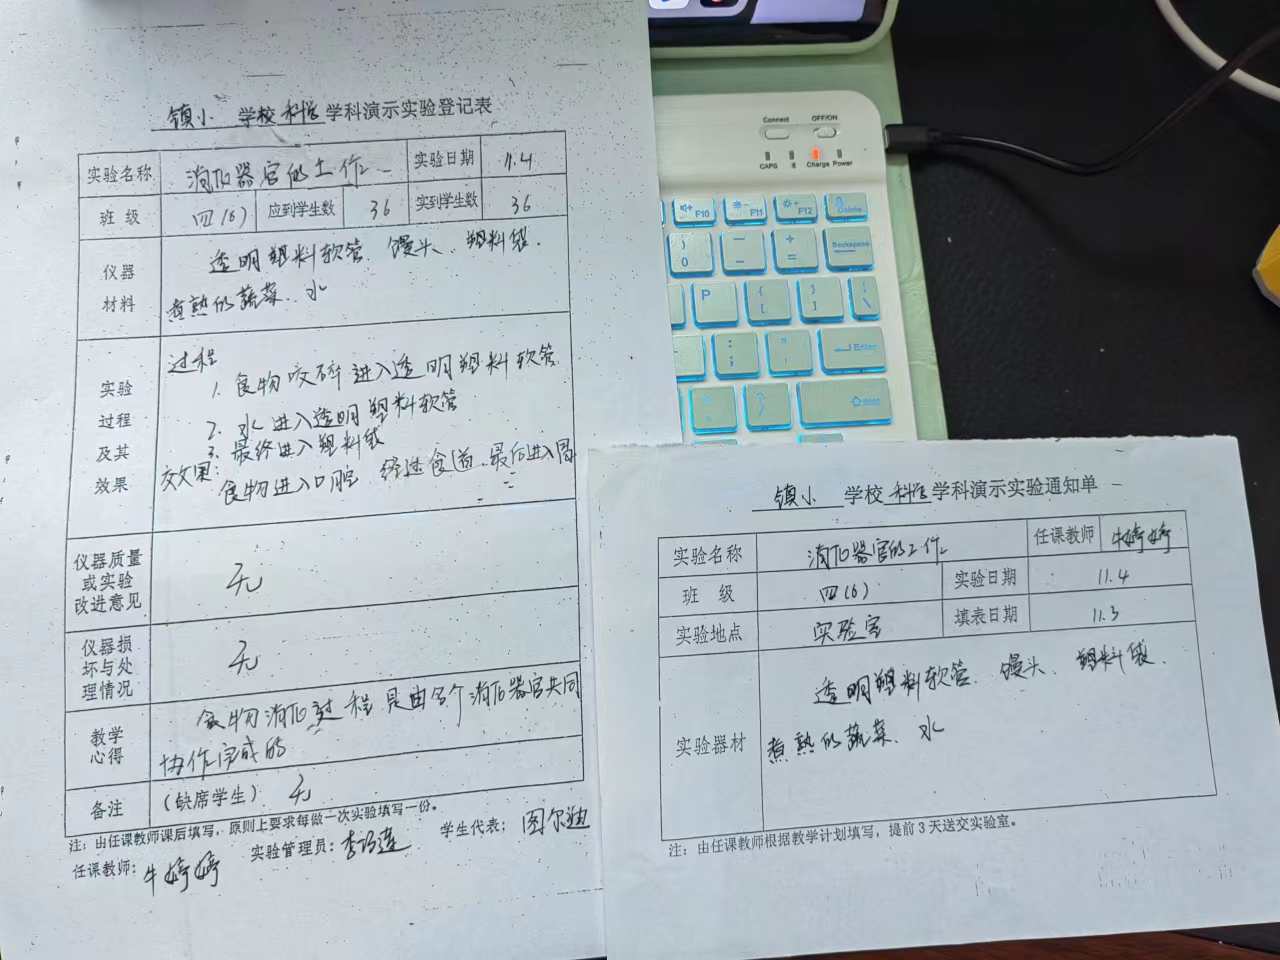 镇小 学校 科学 学科演示实验登记表
实验名称 消化器官的工作 实验日期 11.4
班 级 四(6) 应到学生数 36 实到学生数 36
仪器材料 透明塑料软管、馒头、塑料袋、
煮熟的蔬菜、水
实验过程及其效果 过程
1. 食物咬碎进入透明塑料软管
2. 水进入透明塑料软管
3. 最终进入塑料袋
效果:
食物进入口腔,经过食道,最后进入胃
仪器质量或实验改进意见 无
仪器损坏与处理情况 无
教学心得 食物消化过程是由各个消化器官共同
协作完成的
备注 (缺席学生) 无
注:由任课教师课后填写,原则上要求每做一次实验填写一份。
任课教师:牛婷婷 实验管理员: 学生代表:
镇小 学校 科学 学科演示实验通知单
实验名称 消化器官的工作 任课教师 牛婷婷
班 级 四(6) 实验日期 11.4
实验地点 实验室 填表日期 11.3
实验器材 透明塑料软管、馒头、塑料袋、
煮熟的蔬菜、水
注:由任课教师根据教学计划填写,提前3天送交实验室。
Connect OFF/ON
CAPS Charge Power
F10 F11 F12 Delete
) 0 — - + = Backspace
P { [ } ] | \
: ; " ' Enter
? /